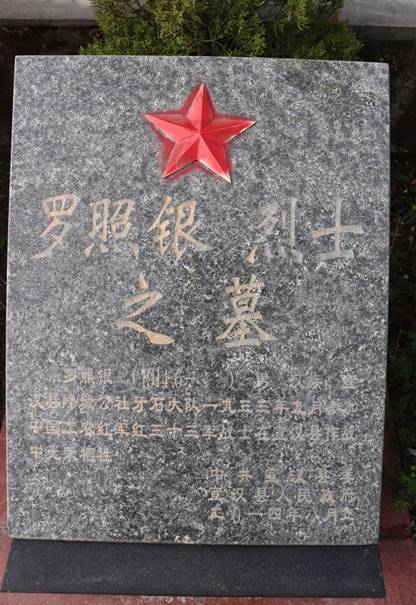 罗照银 烈士
之墓
罗照银（1914.6— ）男 汉族 宣
汉县 公社牙石大队一九三三年 月参加
中国工农红军红三十三军战士在宣汉县作战
中光荣牺牲
中共宣汉县委
宣汉县人民政府
二0一四年八月立